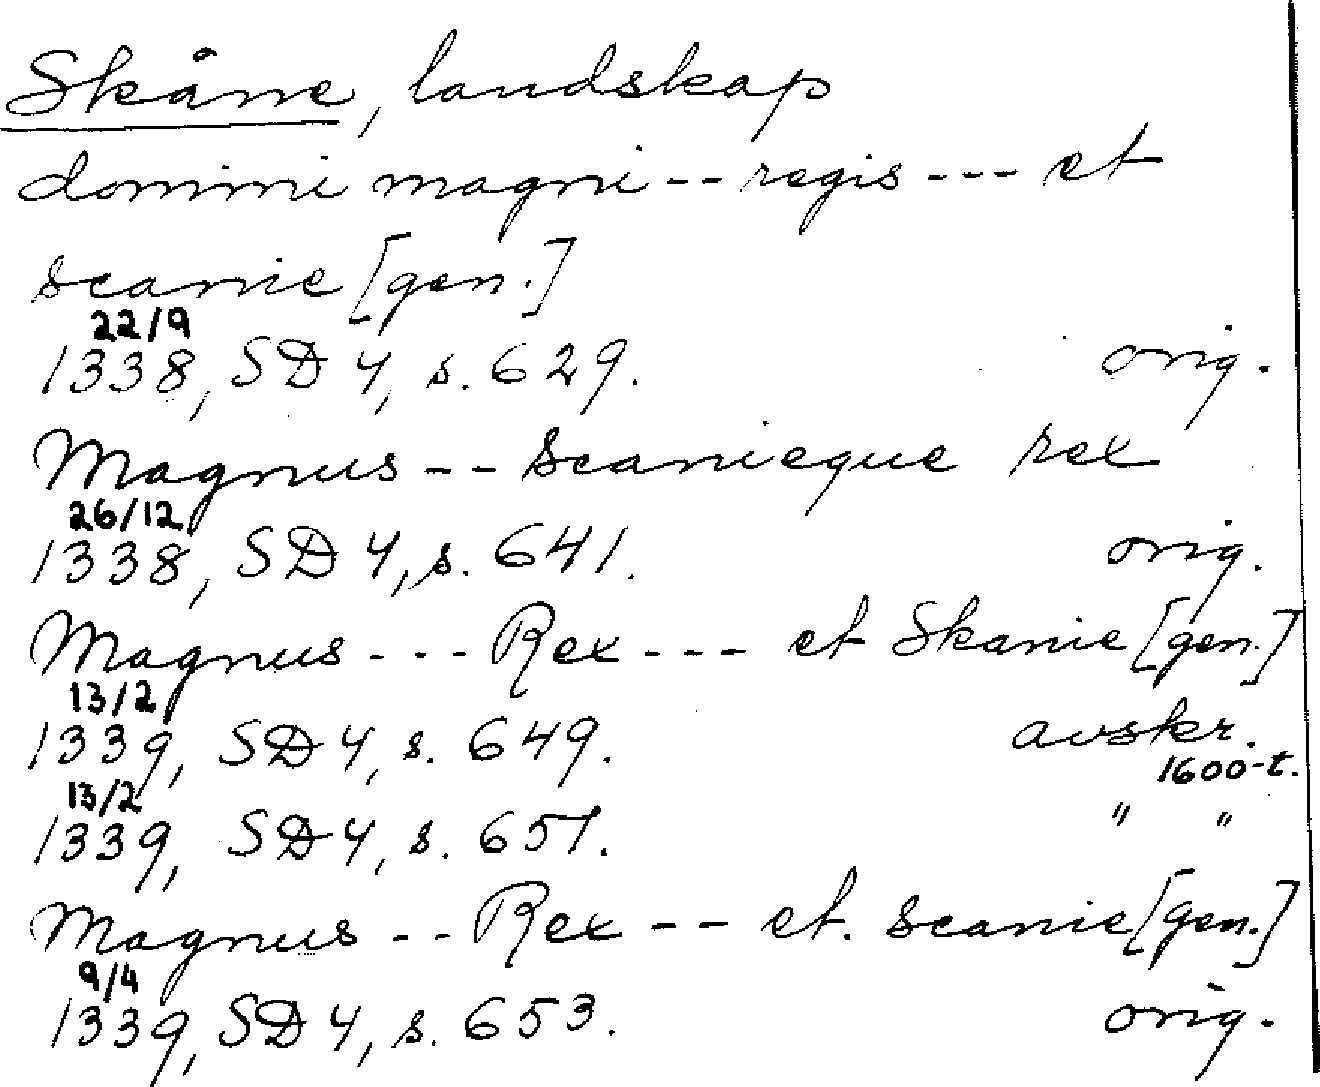 Skåne, landskap
domini magni -- regis --- et
scanie [gen.]
22/9
1338, SD 4, s. 629. orig.
Magnus -- scanieque rex
26/12
1338, SD 4, s. 641. orig.
Magnus --- Rex --- et Skanie [gen.]
13/2
1339, SD 4, s. 649. avskr.
1600-t.
13/2
1339, SD 4, s. 651. " "
Magnus -- Rex -- et. scanie [gen.]
9/4
1339, SD 4, s. 653. orig.